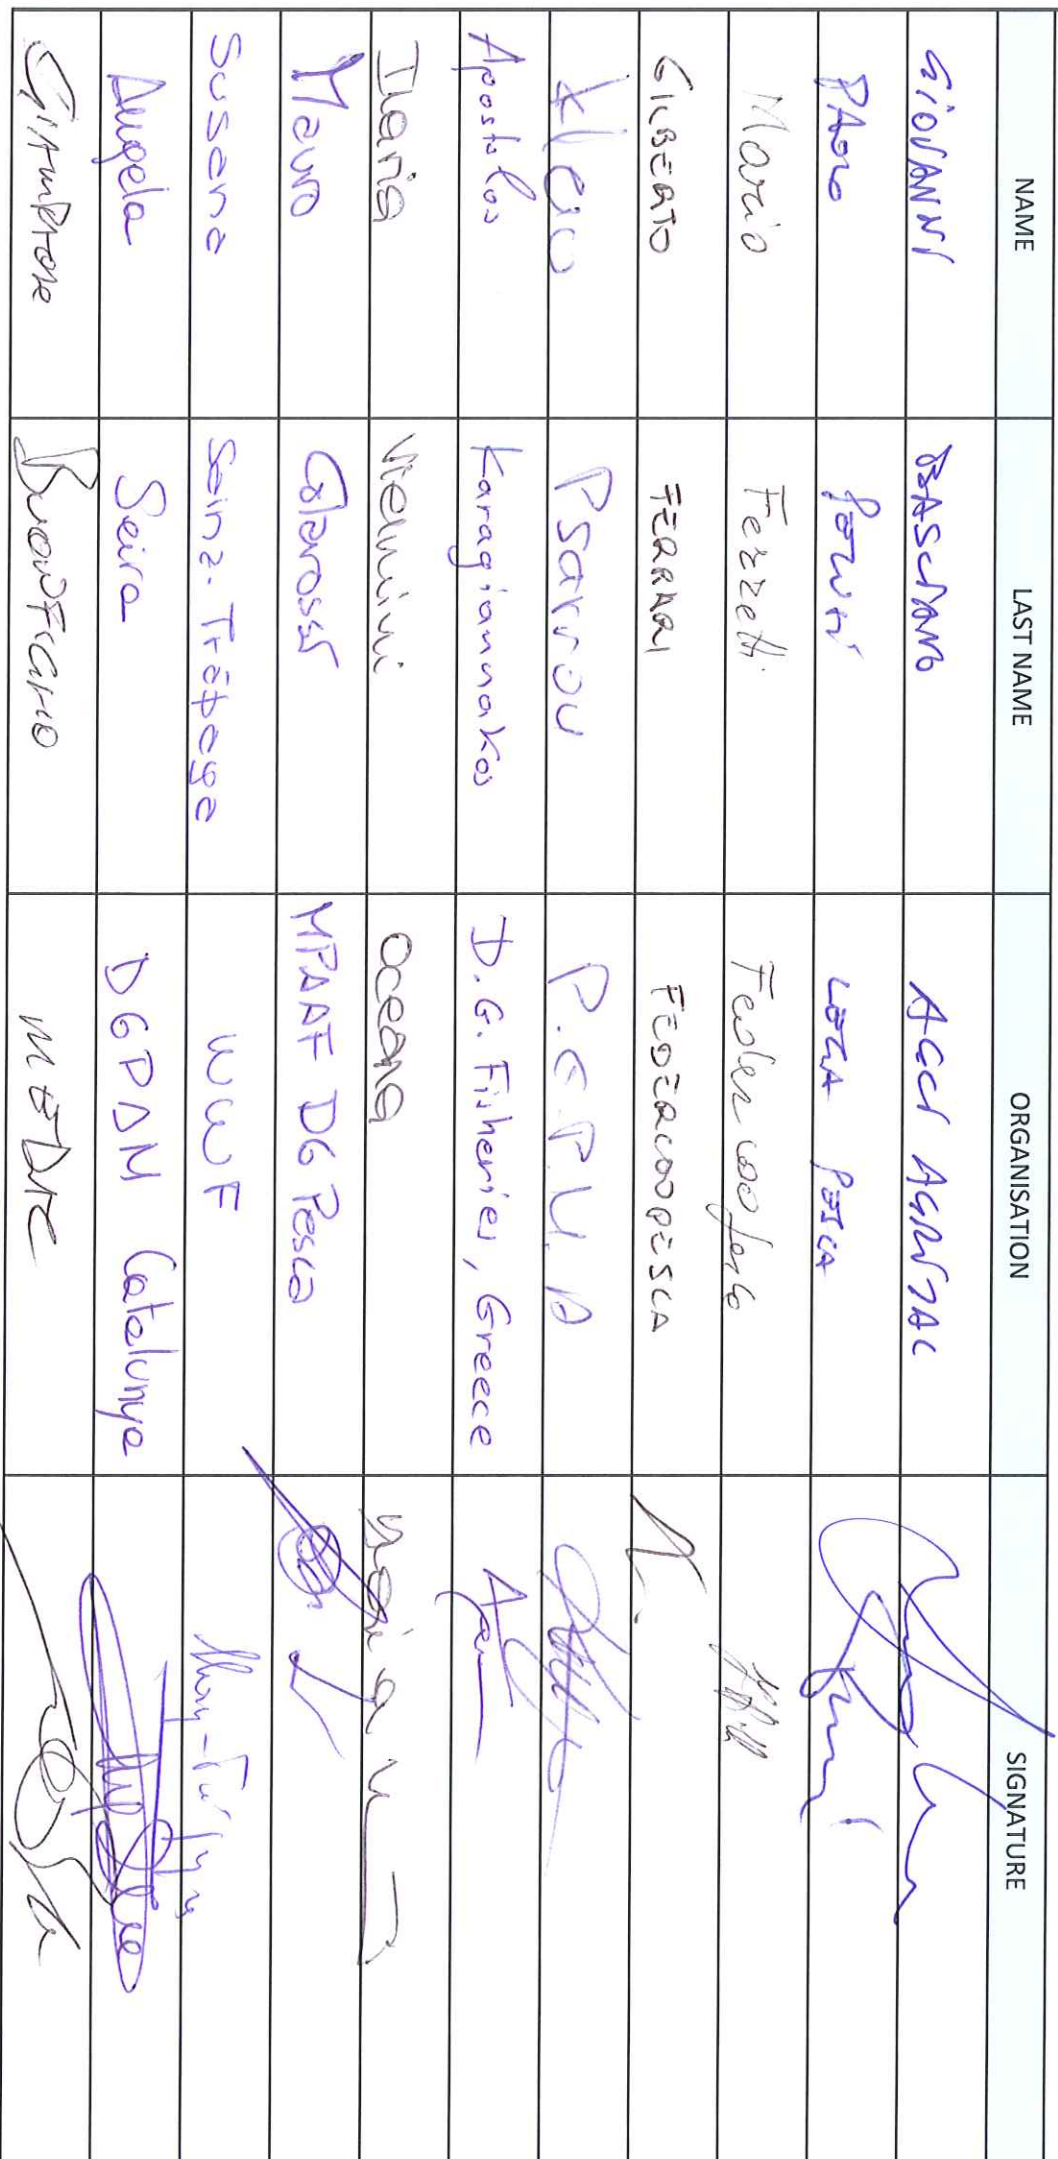 NAME LAST NAME ORGANISATION SIGNATURE
GIOVANNI BASCIANO AGCI AGRITAL
PAOLO
LEGA PESCA
Mario Ferretti Federcoopesca
GILBERTO FERRARI FEDERCOOPESCA
Kleio Psarrou P.E.P.M.A
Apostolos Karagiannakos D.G. Fisheries, Greece
Ilaria Vielmini OCEANA
Mauro Colarossi MPAAF DG Pesca
Susana Sainz-Trápaga WWF
Angela Seira DGPAM Catalunya
GIAMPAOLO BUONFIGLIO MEDAC